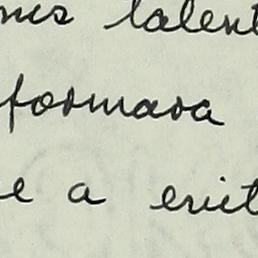 talent
formara
e a evit